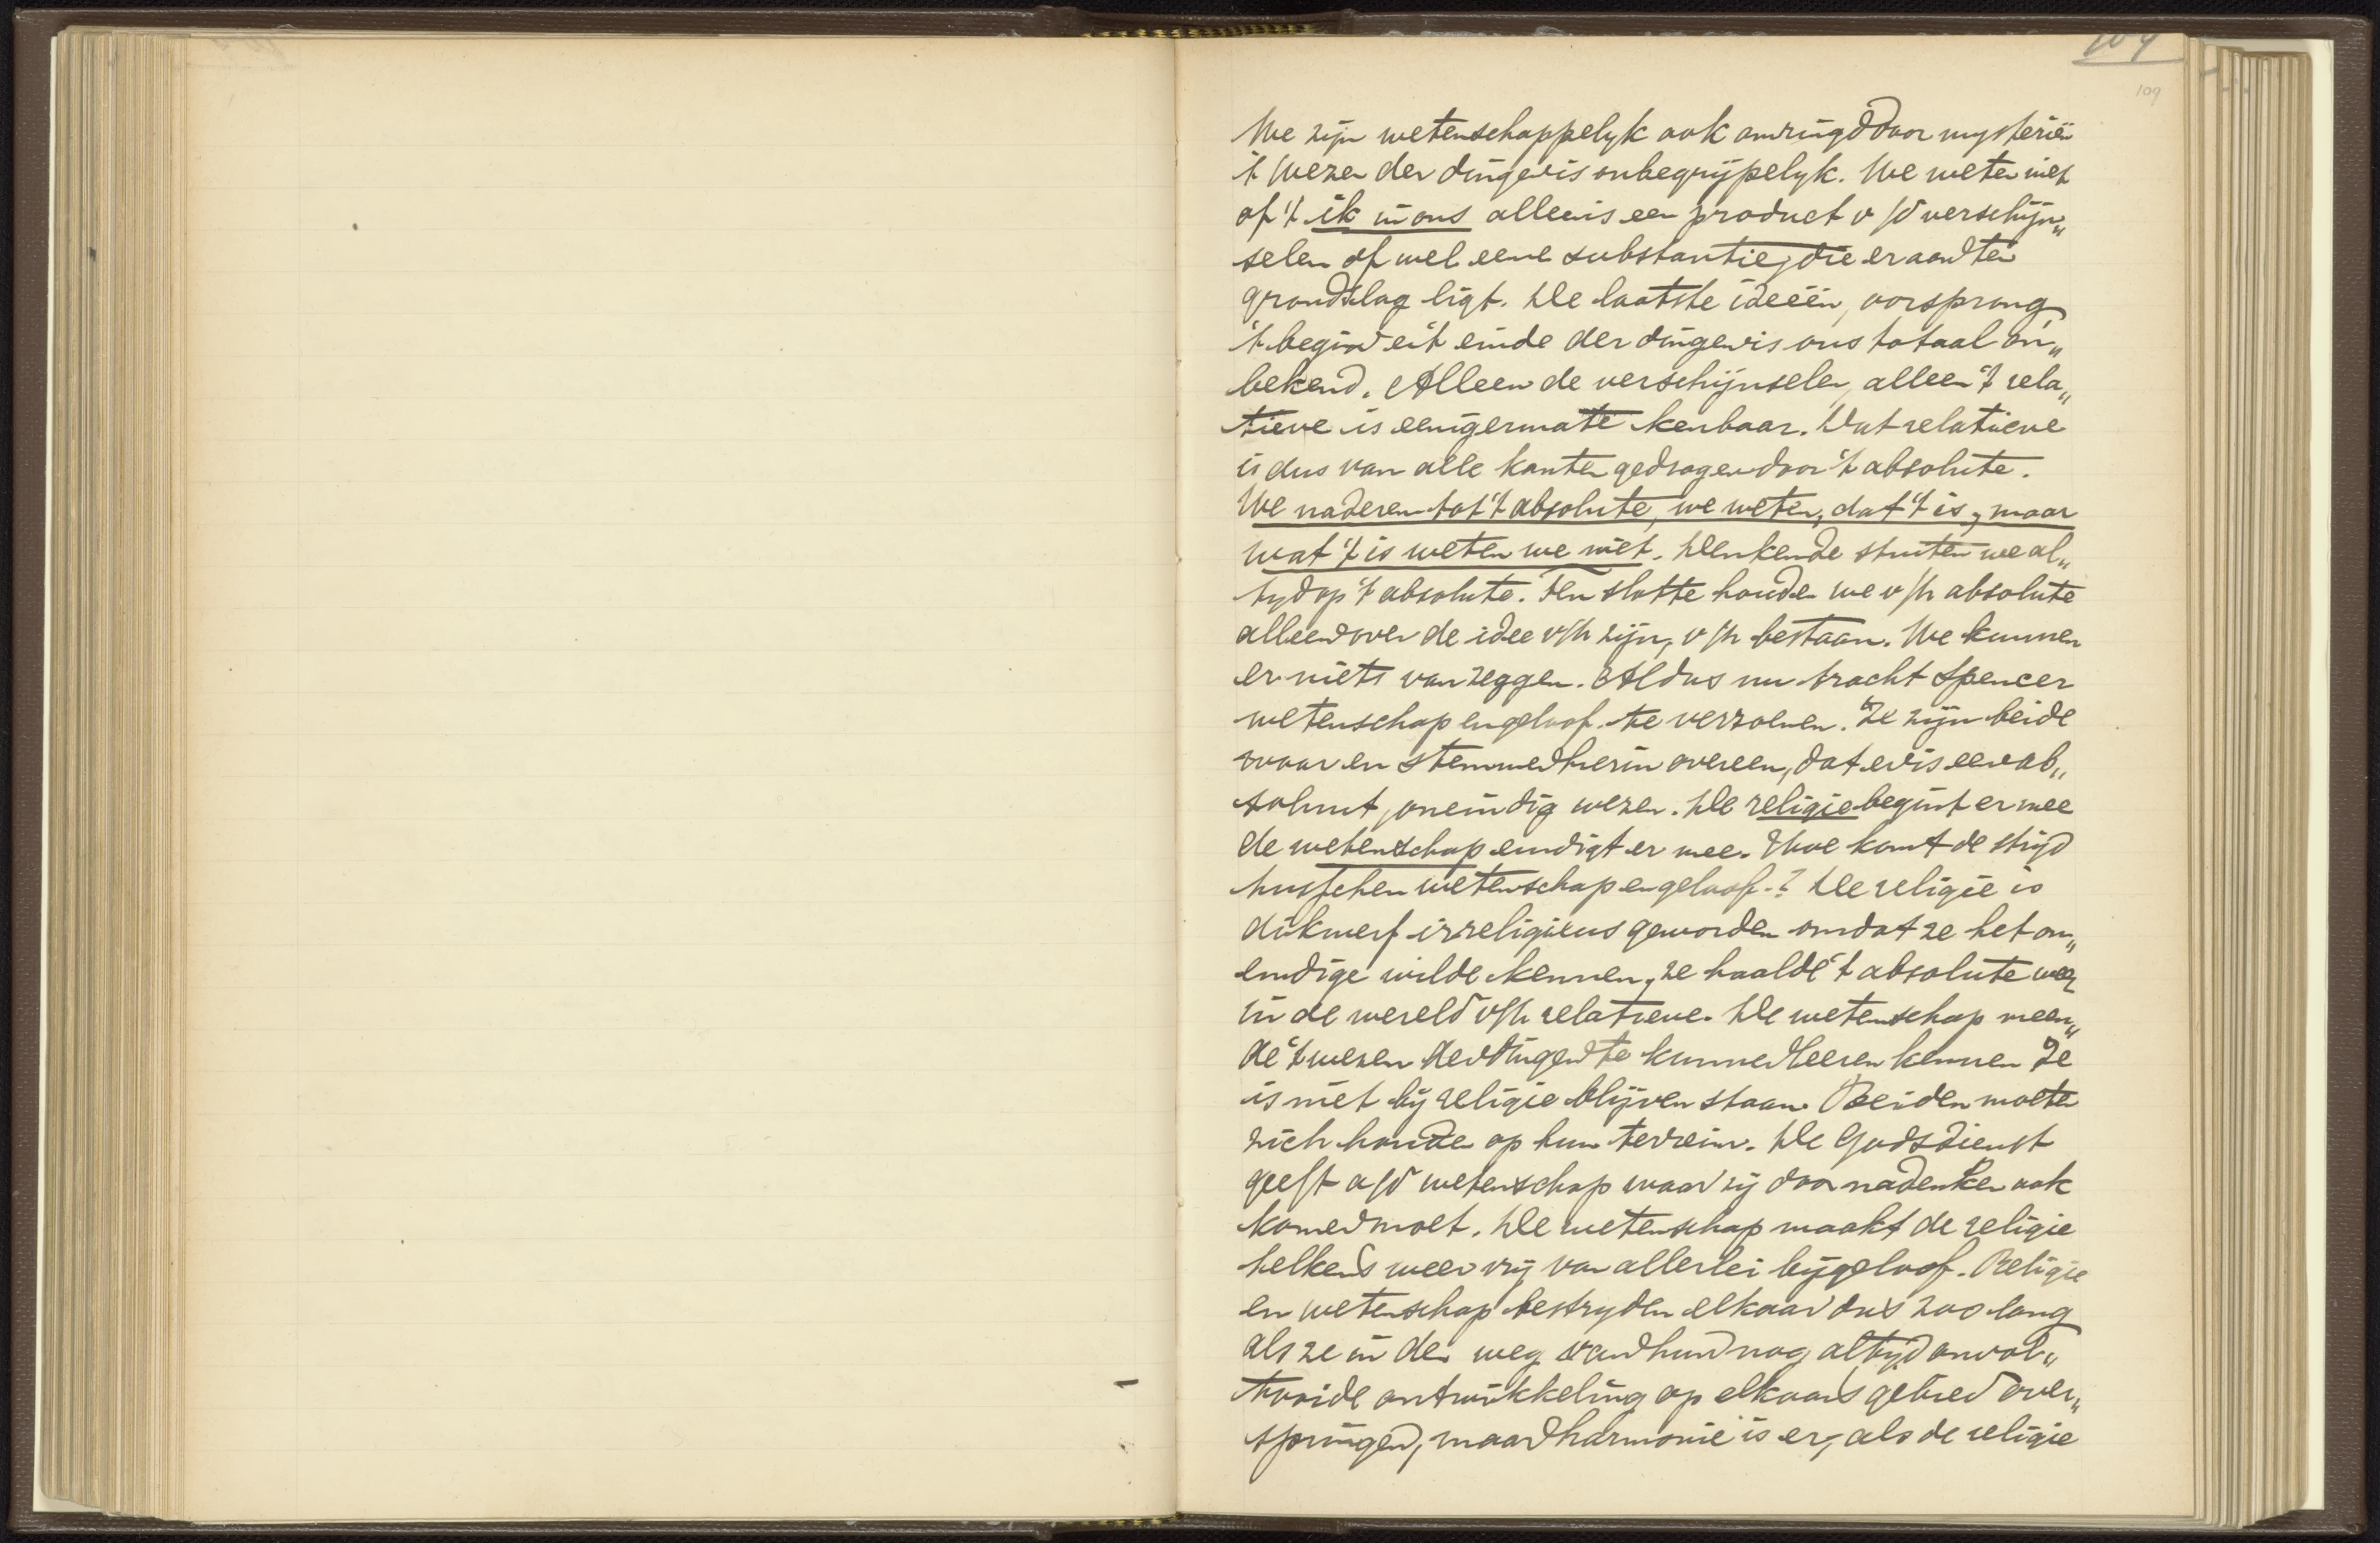 109
109
We zijn wetenschappelyk ook omringd door mysteriën
't Wezen der dingen is onbegrijpelyk. We weten niet
of 't ik in ons alleen is een product v/d verschijn„
selen of wel eene substantie, die er aan ten
grondslag ligt. De laatste ideeën, oorsprong
't begin en 't einde der dingen is ons totaal on„
bekend. Alleen de verschijnselen, alleen 't rela„
tieve is eenigermate kenbaar. Dat relatieve
is dus van alle kanten gedragen door 't absolute.
We naderen tot 't absolute, we weten, dat 't is, maar
wat 't is weten we niet. Denkende stuiten we al„
tyd op 't absolute. Ten slotte houden we v/h absolute
alleen over de idee v/h zijn, v/h bestaan. We kunnen
er niets van zeggen. Aldus nu tracht Spencer
wetenschap en geloof te verzoenen. Ze zijn beide
waar en stemmen hierin overeen, dat er is een ab„
soluut, oneindig wezen. De religie begint er mee
de wetenschap eindigt er mee. Hoe komt de strijd
tusschen wetenschap en geloof? De religie is
dikwerf irreligieus geworden omdat ze het on„
eindige wilde kennen, ze haalde 't absolute weg
in de wereld v/h relatieve. De wetenschap meen„
de 't wezen der dingen te kunnen leeren kennen Ze
is niet bij religie blijven staan. Beiden moeten
zich houden op hun terrein. De Godsdienst
geeft a/d wetenschap waar zij door nadenken ook
komen moet. De wetenschap maakt de religie
telkens meer vrij van allerlei bijgeloof. Religie
en wetenschap bestryden elkaar dus zoo lang
als ze in den weg van hun nog altijd onvol„
tooide ontwikkeling op elkaars gebied over„
springen, maar harmonie is er, als de religie